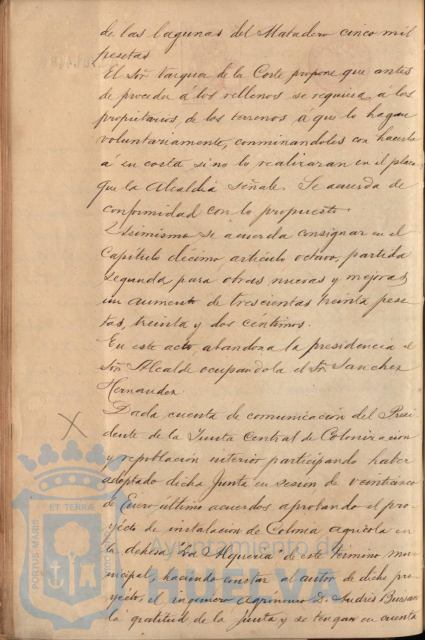 de las lagunas del Matadero cinco mil
pesetas
El Sor Vazquez de la Corte propone que antes
de proceder á los rellenos se requiera á los
propietarios de los terrenos á que lo hagan
voluntariamente, conminandoles con hacerlo
á su costa si no lo realizaran en el plazo
que la Alcaldia señale. Se acuerda de
conformidad con lo propuesto.
Asimismo se acuerda consignar en el
Capítulo décimo artículo octavo, partida
segunda para obras nuevas y mejoras,
un aumento de trescientas treinta pese
tas, treinta y dos céntimos.
En este acto abandona la presidencia el
Sor Alcalde ocupandola el Sr Sanchez
Hernandez.
Dada cuenta de comunicación del Presi
dente de la Junta Central de Colonizacion
y repoblación interior participando haber
adoptado dicha Junta en sesion de veinticinco
de Enero último acuerdos aprobando el pro
yecto de instalacion de Colonia agrícola en
la dehesa La Alqueria de este termino mu
nicipal, haciendo constar al autor de dicho pro
yecto, el ingeniero agrónomo D. Andrés
la gratitud de la Junta y se tengan en cuenta
PORTUS MARIS
ET TERRÆ
Ayuntamiento de
HUELVA